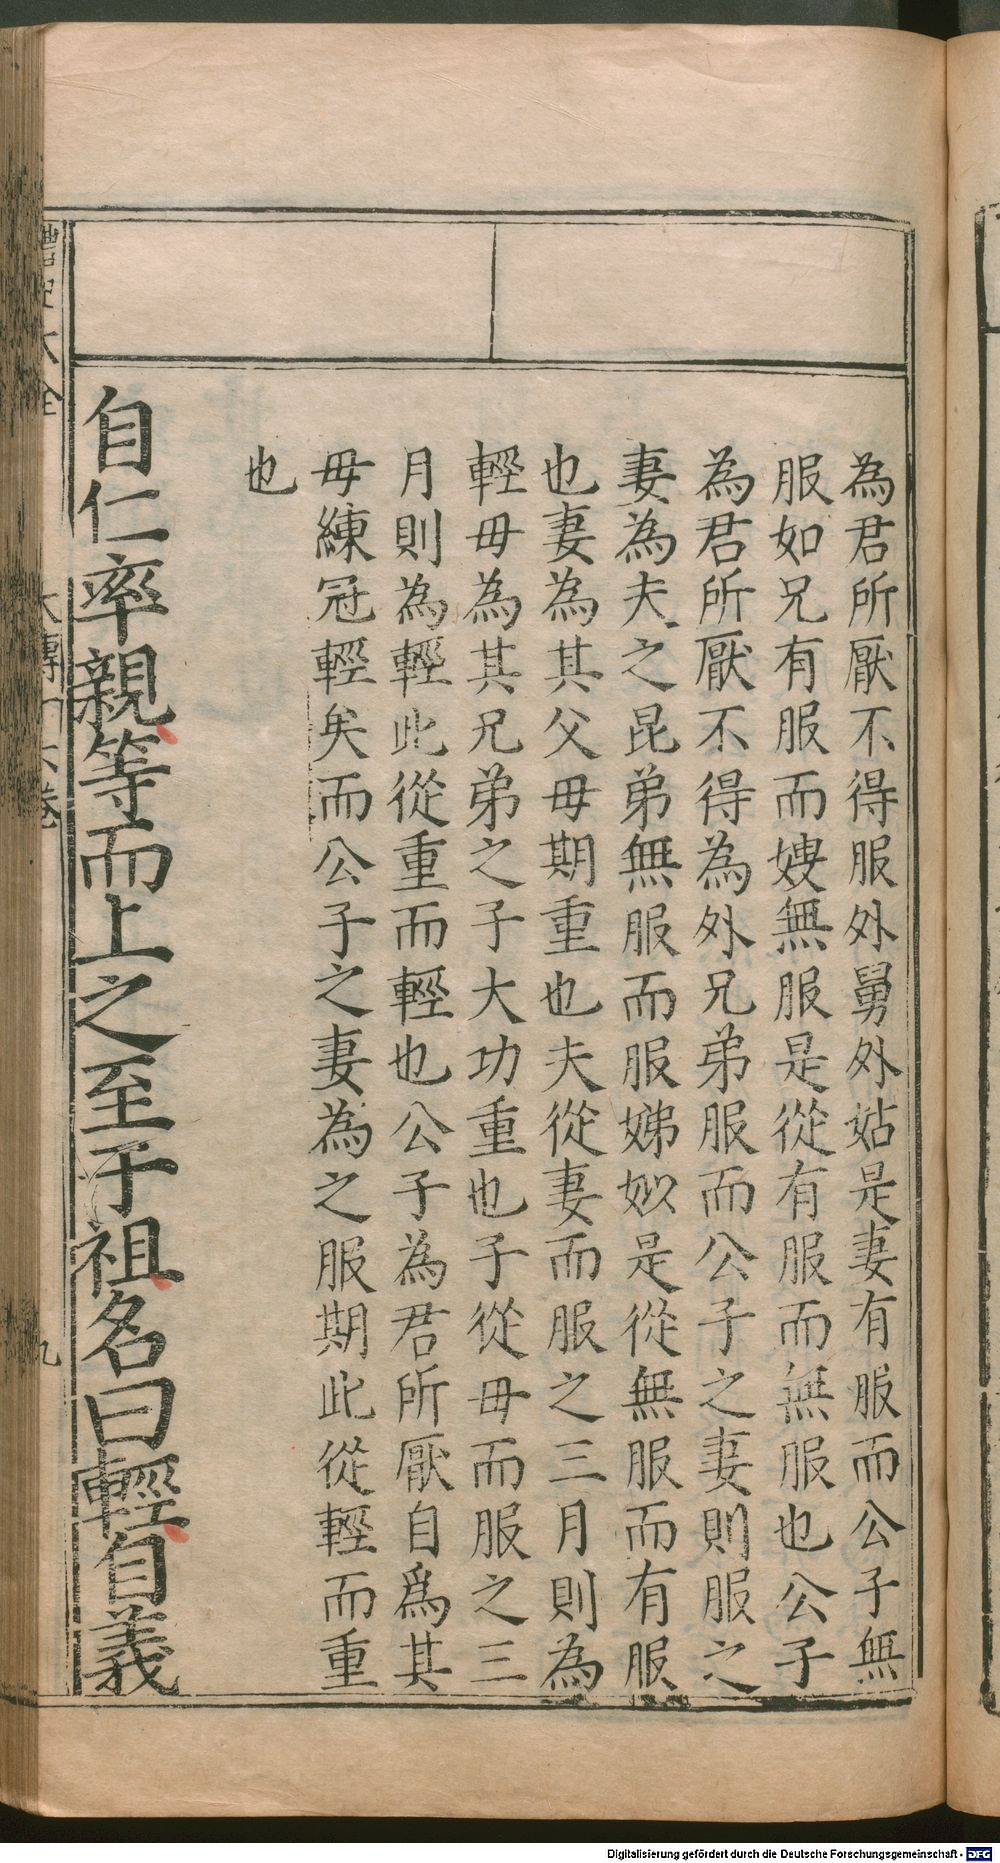 為君所厭不得服外舅外姑是妻有服而公子無
服如兄有服而嫂無服是從有服而無服也公子
為君所厭不得為外兄弟服而公子之妻則服之
妻為夫之昆弟無服而服娣姒是從無服而有服
也妻為其父毋期重也夫從妻而服之三月則為
輕毋為其兄弟之子大功重也子從毋而服之三
月則為輕此從重而輕也公子為君所厭自爲其
毋練冠輕矣而公子之妻為之服期此從輕而重
也
自仁率親等而上之至于祖名曰輕自義
大全
九
Digitalisierung gefördert durch die Deutsche Forschungsgemeinschaft - DFG